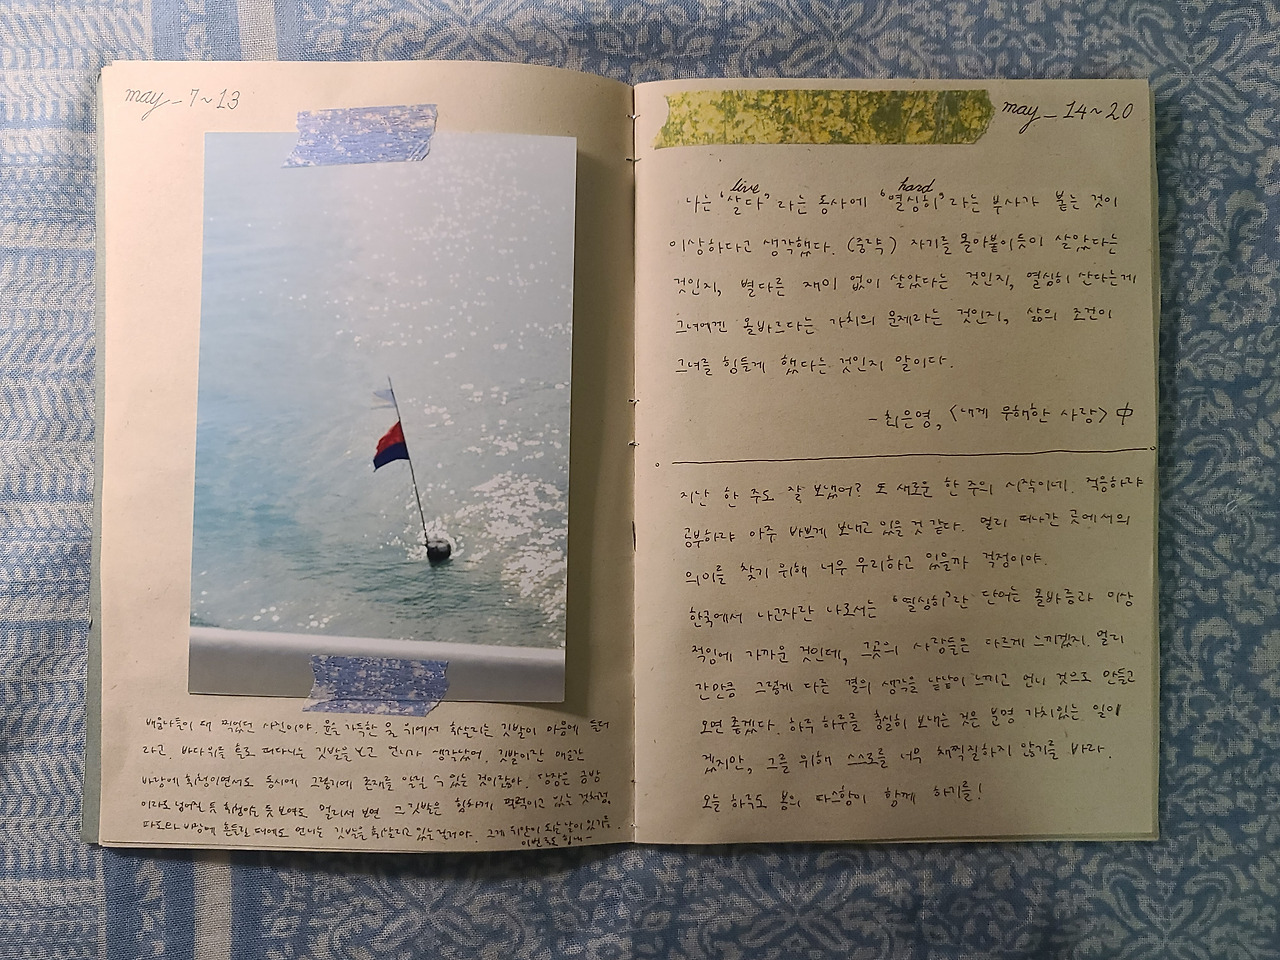 may_7~13
때 찍었던 사진이야. 가득한 위에서 휘날리는 깃발이 마음에 들더
라고. 바다위를 홀로 떠다니는 깃발을 보고 언니가 생각났어. 깃발이란 매순간
바람에 휘청이면서도 동시에 그렇기에 존재를 알릴 수 있는 것이잖아. 당장은 금방
이라도 넘어질 듯 보여도 멀리서 보면 그 깃발은 힘차게 펄럭이고 있는 것처럼,
파도와 바람에 흔들릴 때에도 언니는 깃발을 휘날리고 있는 걸거야. 그게 위안이 되는 날이 있기를.
이번 주도
may_14~20
live hard
나는 '살다'라는 동사에 '열심히'라는 부사가 붙는 것이
이상하다고 생각했다. (중략) 자기를 몰아붙이듯이 살았다는
것인지, 별다른 재미 없이 살았다는 것인지, 열심히 산다는게
그녀에겐 올바르다는 가치의 문제라는 것인지, 삶의 조건이
그녀를 힘들게 했다는 것인지 말이다.
- 최은영, <내게 무해한 사람> 中
지난 한 주도 잘 보냈어? 또 새로운 한 주의 시작이네. 적응하랴
공부하랴 아주 바쁘게 보내고 있을 것 같다. 멀리 떠나간 곳에서의
의미를 찾기 위해 너무 무리하고 있을까 걱정이야.
한국에서 나고자란 나로서는 '열심히'란 단어는 올바름과 이상
적임에 가까운 것인데, 그곳의 사람들은 다르게 느끼겠지. 멀리
간만큼 그렇게 다른 결의 생각을 낱낱이 느끼고 언니 것으로 만들고
오면 좋겠다. 하루 하루를 충실히 보내는 것은 분명 가치있는 일이
겠지만, 그를 위해 스스로를 너무 채찍질하지 않기를 바라.
오늘 하루도 봄의 다스함이 함께 하기를!